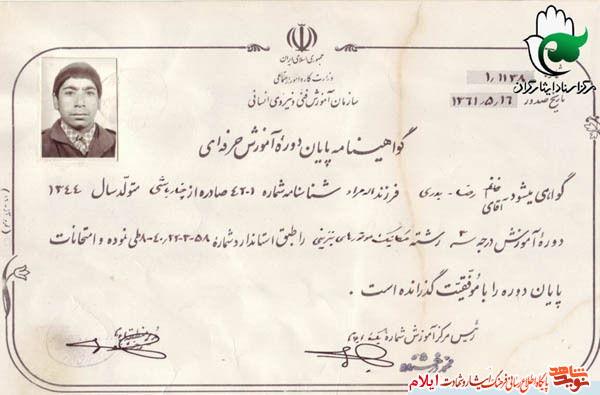 جمهوری اسلامی ایران
وزارت کار و امور اجتماعی
سازمان آموزش فنی و نیروی انسانی
مرکز اسناد ایثارگران
۱٫۱۱۳۸
تاریخ صدور ۱۳۶۱٫۵٫۱۶
گواهینامه پایان دوره آموزش حرفه‌ای
گواهی میشود خانم آقای رضا - بدری فرزند اله مراد شناسنامه شماره ۴۲۰۱ صادره از متولد سال ۱۳۴۴
دوره آموزش درجه ۳ رشته مکانیک موتورهای بنزینی را طبق استاندارد شماره ۵۸-۳-۴٫۲۲-۸ طی نموده و امتحانات
پایان دوره را با موفقیت گذرانده است .
رئیس مرکز آموزش شماره یک ایلام
نوید شاهد پایگاه اطلاع رسانی فرهنگ ایثار و شهادت ایلام